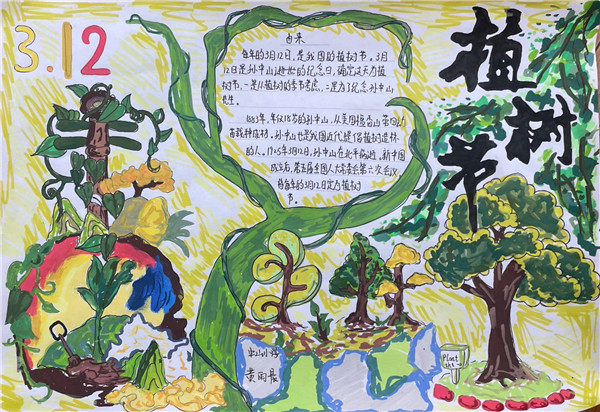 3.12
植树节
由来
每年的3月12日,是我国的植树节。3月
12日是孙中山逝世的纪念日,确定这天为植
树节,一是从植树的季节考虑,一是为了纪念孙中山
先生。
1883年,年仅18岁的孙中山,从美国檀香山带回幼
苗栽种在村。孙中山也是我国近代提倡植树造林
的人。1925年3月12日,孙中山在北平病逝。新中国
成立后,第五届全国人大常委会第六次会议
将每年的3月12日定为植树
节。
黄雨晨
Plant